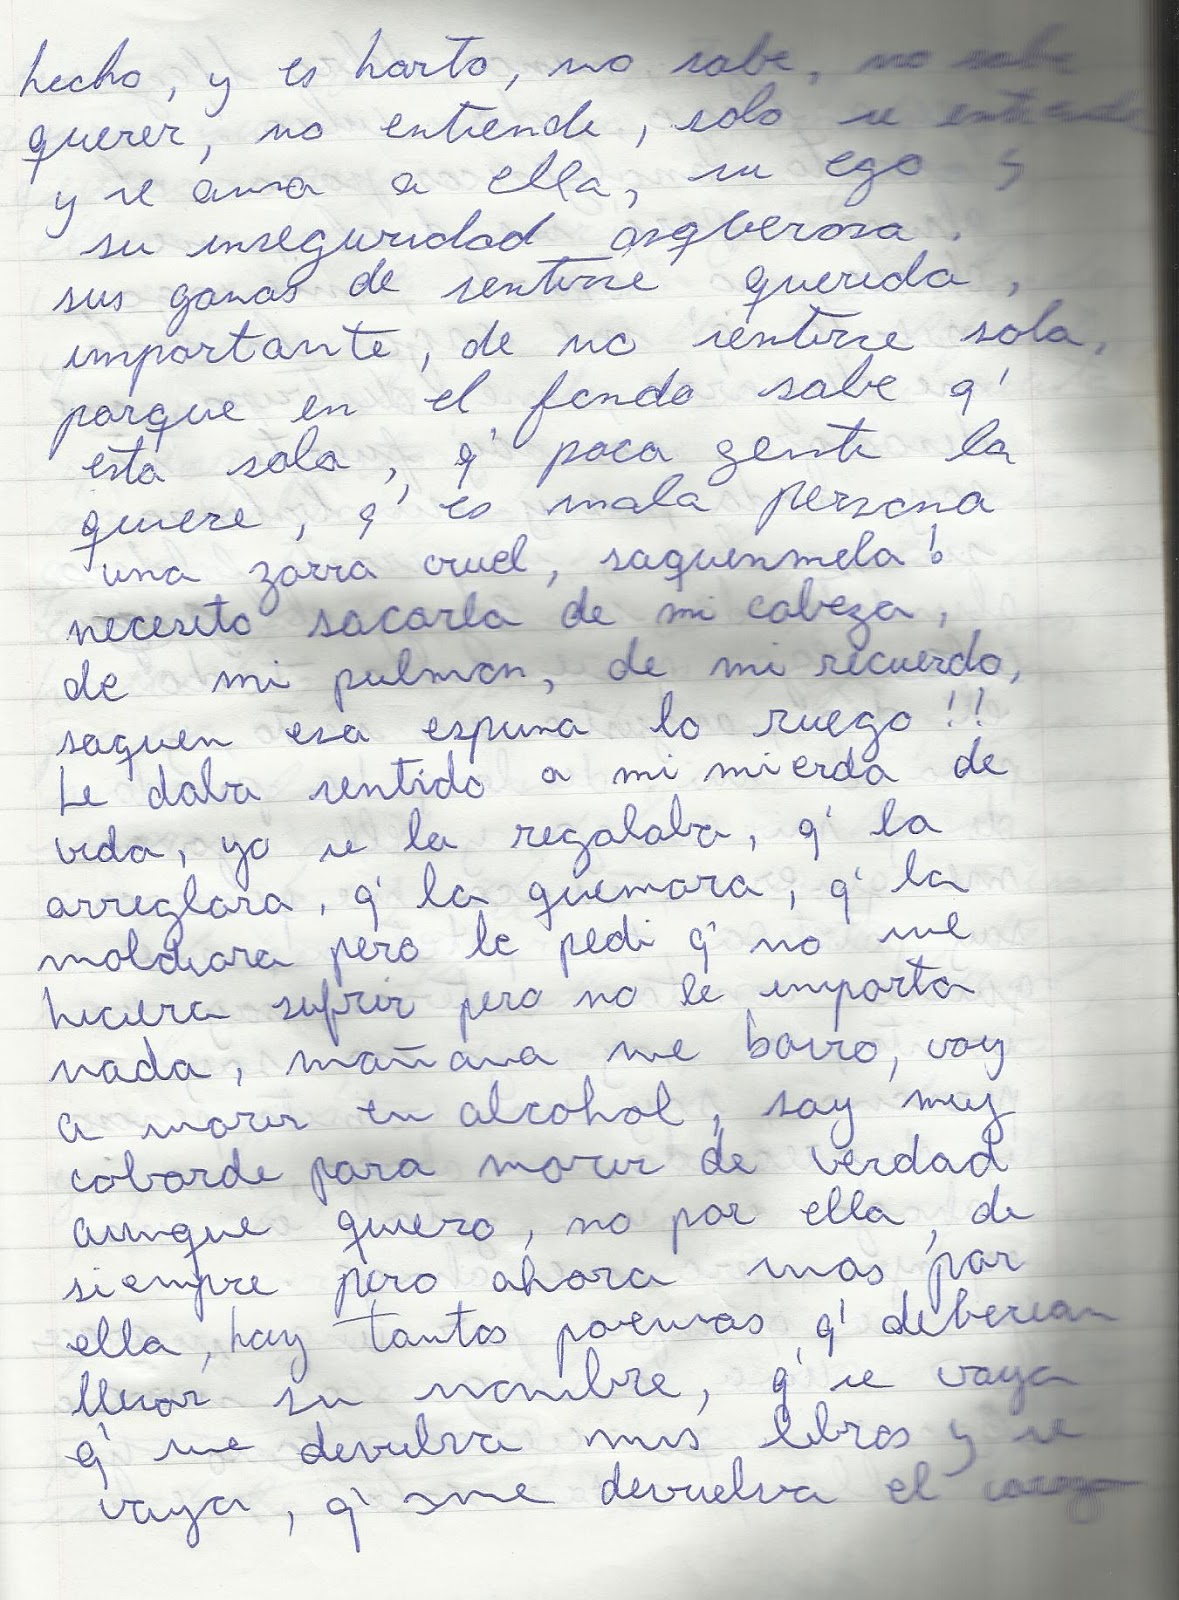 hecho, y es harto, no sabe, no sabe
querer, no entiende, solo se entiende
y se ama a ella, su ego y
su inseguridad asqberosa.
sus ganas de sentirse querida,
importante, de no sentirse sola,
porque en el fondo sabe q'
está sola, q' poca gente la
quiere, q' es mala persona
una zorra cruel, saquenmela!
necesito sacarla de mi cabeza,
de mi pulmon, de mi recuerdo,
saquen esa espina lo ruego!!
Le daba sentido a mi mierda de
vida, yo se la regalaba, q' la
arreglara, q' la quemara, q' la
moldiara pero le pedi q' no me
hiciera sufrir pero no le importa
nada, mañana me borro, voy
a morir en alcohol, soy muy
cobarde para morir de verdad
aunque quiero, no por ella, de
siempre pero ahora mas por
ella, hay tantos poemas q' deberian
llevar su nombre, q' se vaya
q' me devulva mis libros y se
vaya, q' me devuelva el corazon